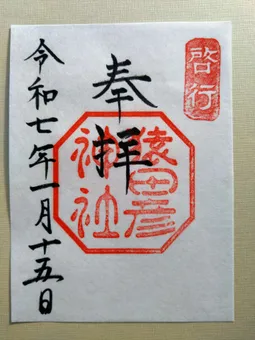 啓行
奉拝
猿田彦
神社
令和七年一月十五日